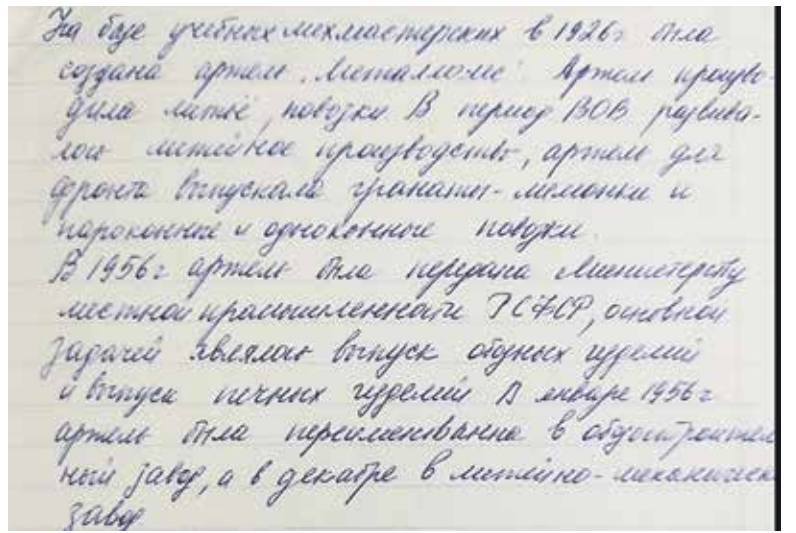 На базе учебных мехмастерских в 1926г была
создана артель "Металлолис". Артель произво-
дила литьё, повозки. В период ВОВ развива-
лось литейное производство, артель для
фронта выпускала гранаты-лимонки и
пароконные и одноконные повозки.
В 1956г артель была передана Министерству
местной промышленности РСФСР, основной
задачей являлось выпуск изделий
и выпуск печных изделий В январе 1956г
артель была переименованна в обозостроитель
ный завод, а в декабре в литейно-механическ
завод.